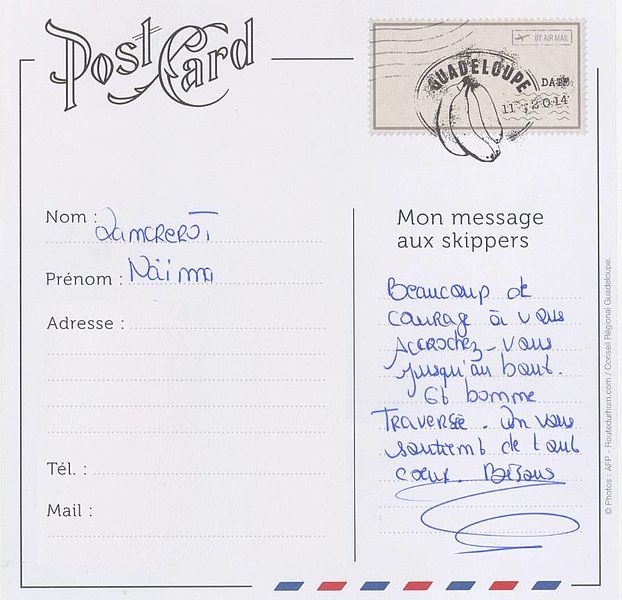 Post Card
BY AIR MAIL
GUADELOUPE
11 2014
Nom :
Prénom : Naïma
Adresse :
Tél. :
Mail :
Mon message
aux skippers
Beaucoup de
courage à vous
Accrochez-vous
jusqu'au bout.
Et bonne
Traversée. On vous
soutient de tout
coeur. Bisous
© Photos : AFP - Routedurhum.com / Conseil Régional Guadeloupe.